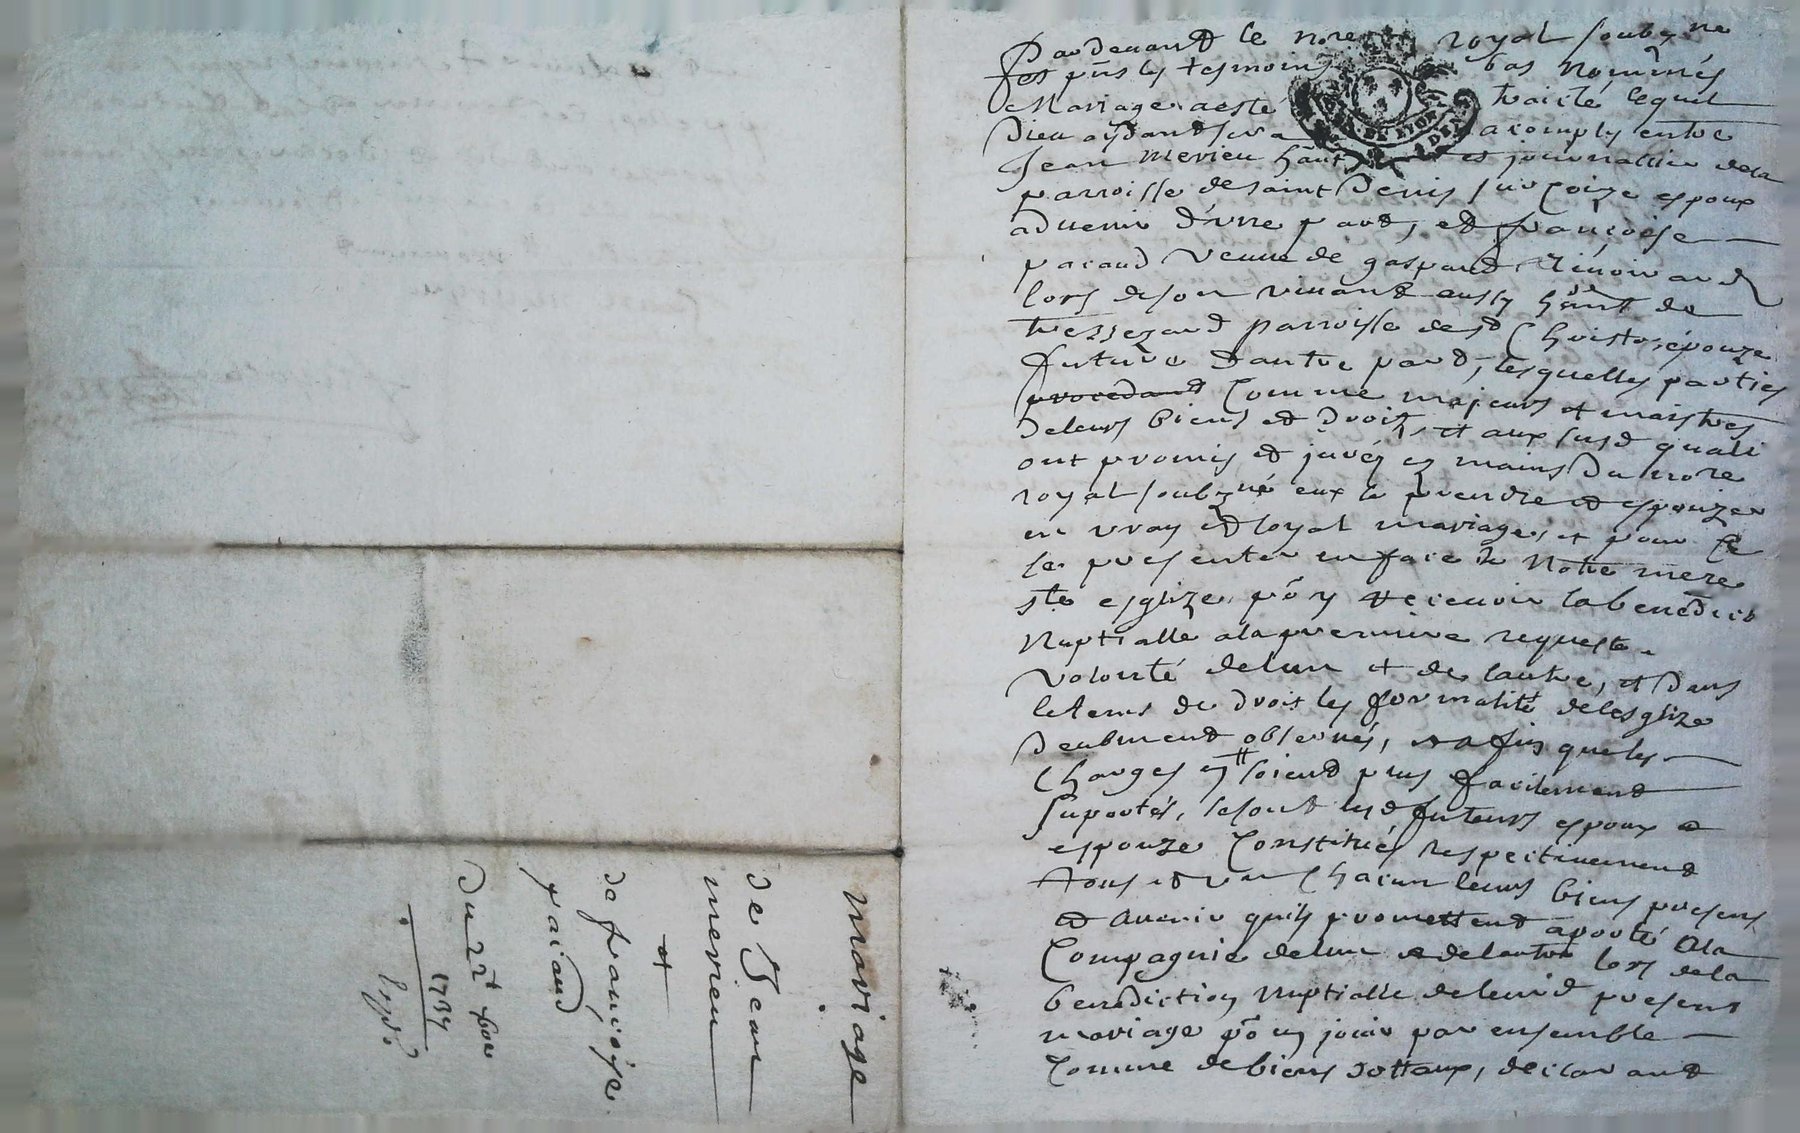 Pardevant le no.re royal soub.ne
et pñs les tesmoins bas nommés
Mariage a esté traicté lequel
Dieu aydant sera acomply entre
Jean merieu hant journallier dela
parroisse de saint Denis sur Coize espoux
advenir d'vne part, et françoise
paiaud veuue de gaspard
lors deson viuant aussy hant de
parroisse de st Christo, épouze
future d'autre part, lesquelles parties
procedant Comme majeurs et maistres
deleurs biens et droits, et aux susd quali
ont promis et juré es mains du no.re
royal soub.né eux se prendre et espouzer
en vray et loyal mariage, et pour ce
se presenter en face de Notre mere
ste esglize po.r y recevoir la benedict
Nuptialle a la premiere requeste
volonté de lun et de lautre, et dans
le tems de droit les formalités de lesglize
deubment observés, et afin que les
Charges en soient plus facilement
suportés, se sont lesd futeurs espoux et
espouze Constitués respectivement
tous et vn Chacun leurs biens presens
et avenir quils promettent aporté a la
Compagnie de lun et de lautre lors de la
benediction Nuptialle de leurd present
mariage po.r en jouir par ensemble
Comme de biens dottaux, declarant
mariage
de Jean
merieu
et
de françoise
paiaud
Du 22.t
1739